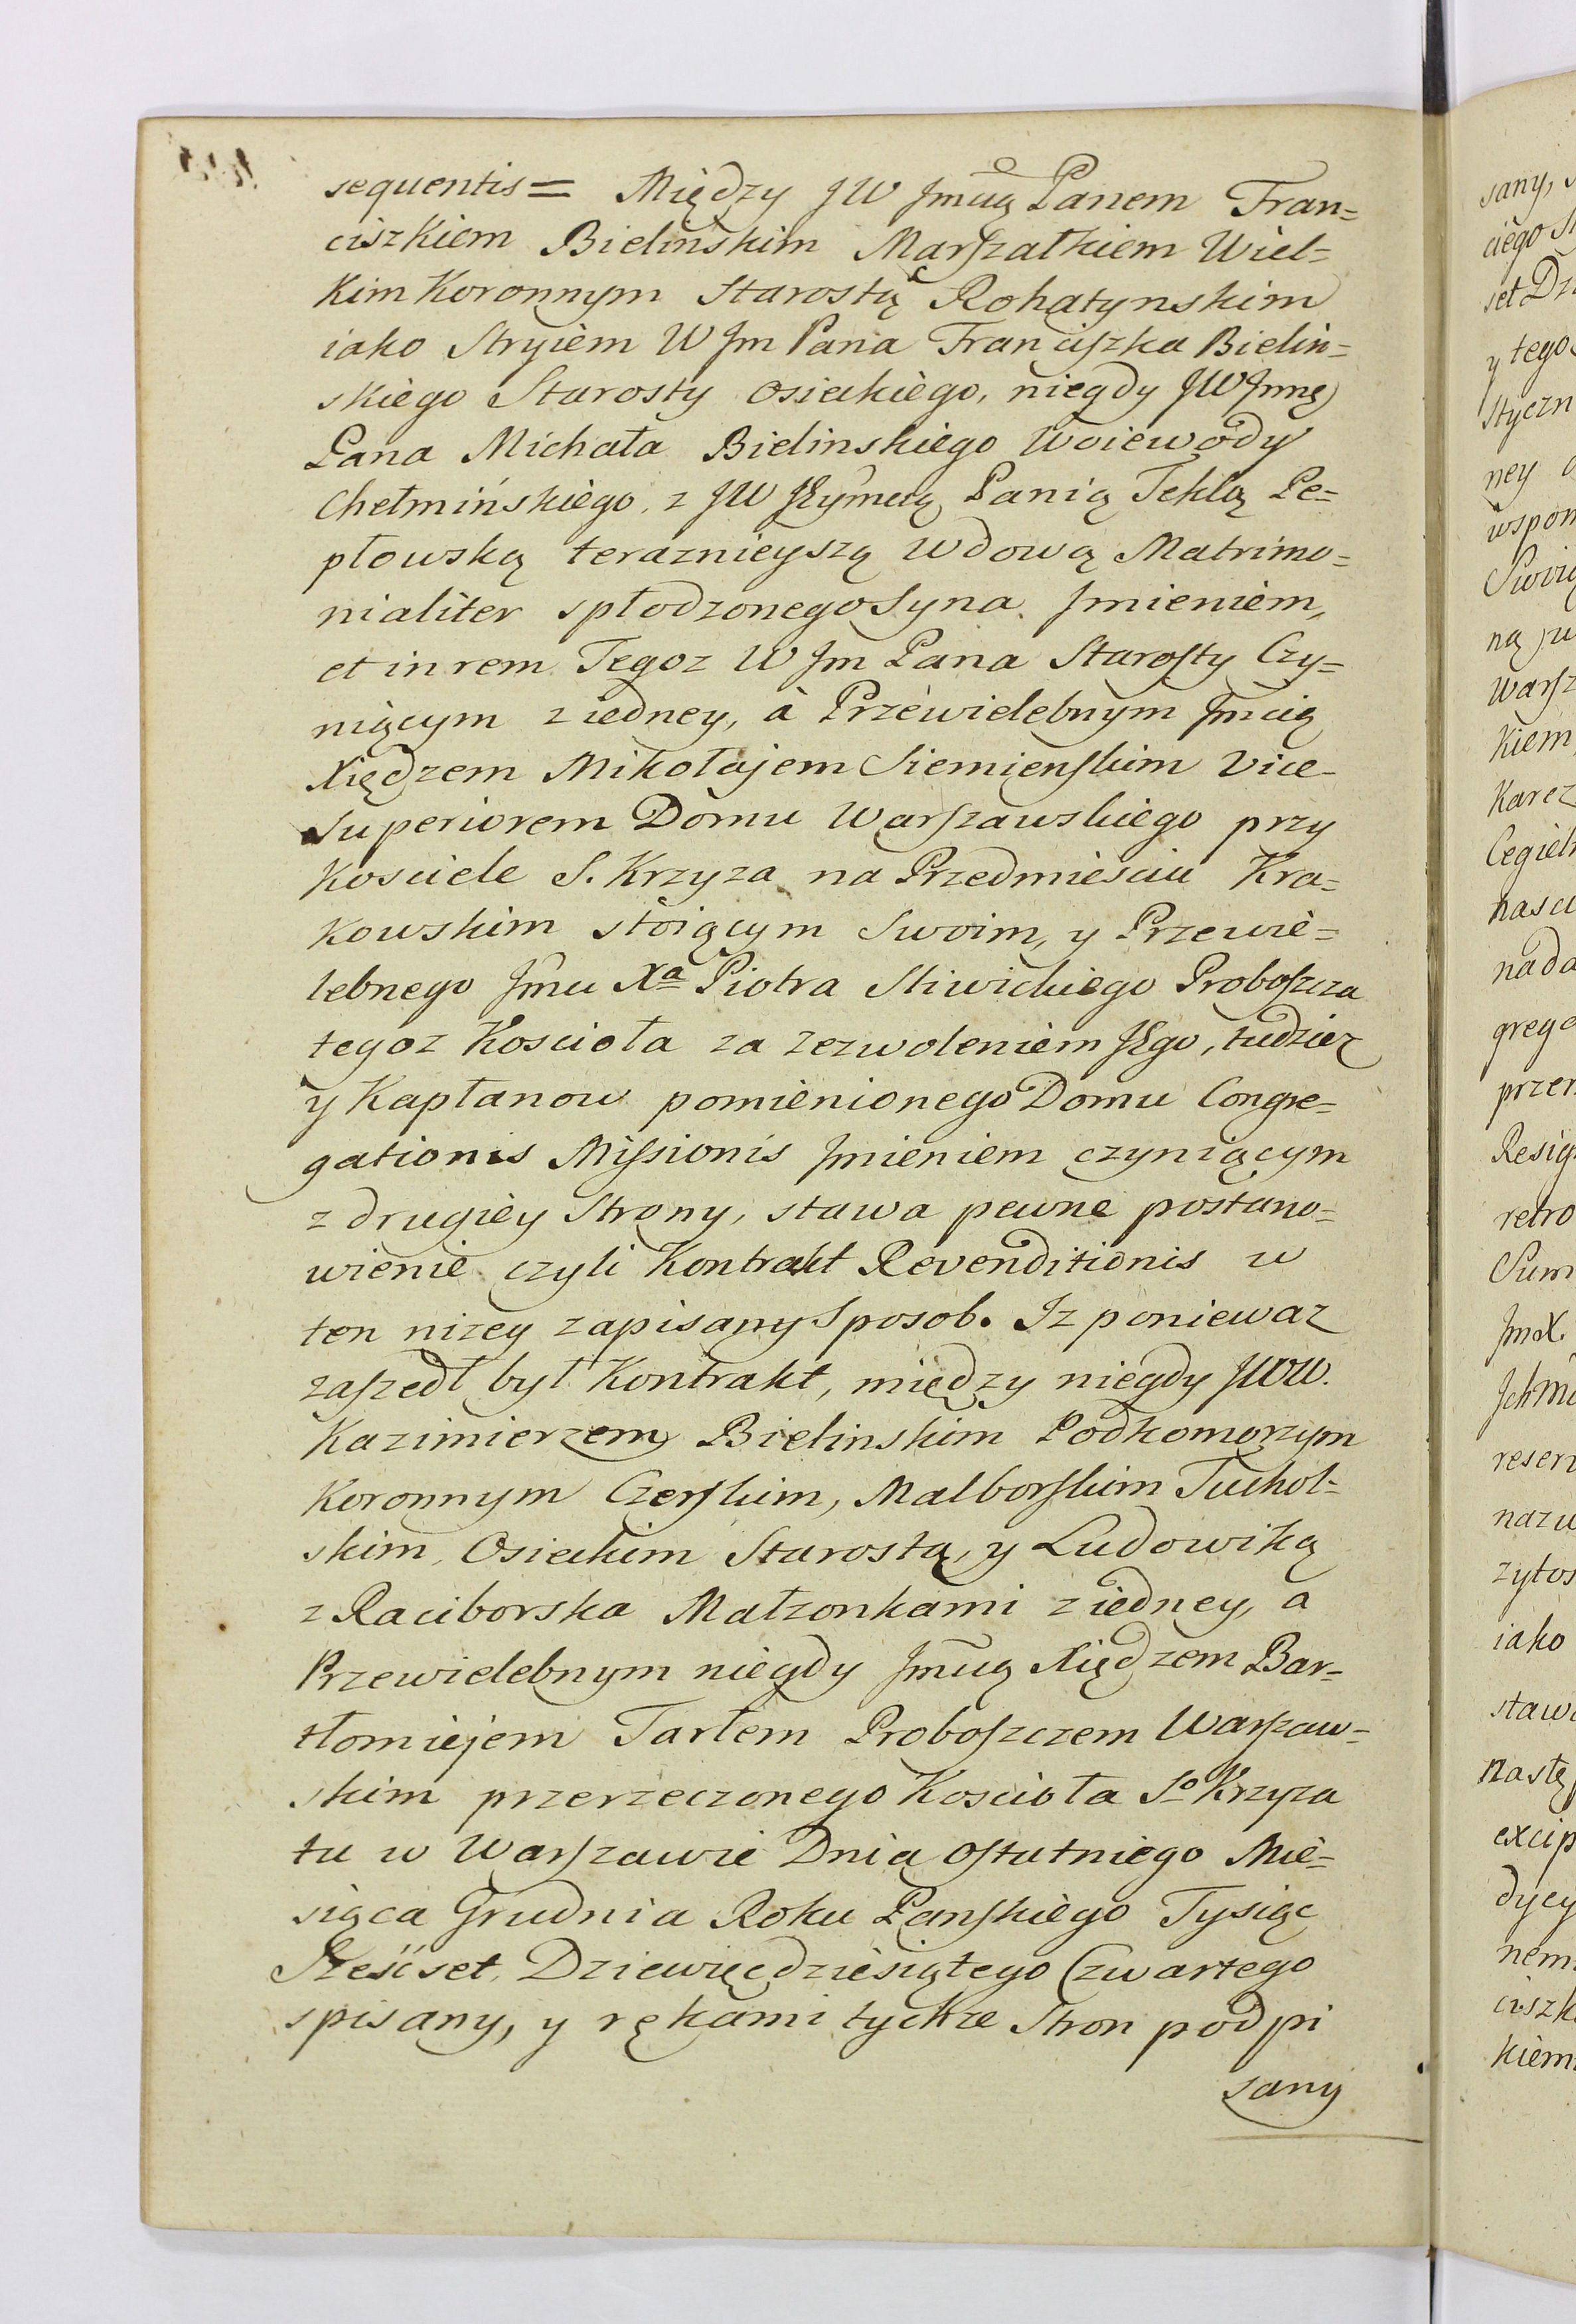 sequentis = Między JW Jmcią Panem Fran=
ciszkiem Bielinskim Marszałkiem Wiel=
kim Koronnym Starostą Rohatynskim
iako Stryiem W Jm Pana Franciszka Bielin=
skiego Starosty Osieckiego, niegdy JW Jmę
Pana Michała Bielinskiego Woiewody
Chełmińskiego, z JW JEymcią Panią Teklą Pe=
płowską teraznieyszą Wdową Matrimo=
nialiter spłodzonego Syna Jmieniem,
et in rem Tegoz W Jm Pana Starosty Czy=
niącym z iedney, à Przewielebnym Jmcią
Xiędzem Mikołajem Siemienskim Vice-
Superiorem Domu Warszawskiego przy
Kosciele S. Krzyza na Przedmiesciu Kra=
kowskim stoiącym Swoim, y Przewie=
lebnego Jmci Xa Piotra Sliwickiego Proboszcza
tegoz Koscioła za Zezwoleniem JEgo, tudziez
y Kapłanow pomienionego Domu Congre=
gationis Missionis Jmieniem czyniącym
z drugiey Strony, stawa pewne postano=
wienie czyli Kontrakt Revenditionis w
ten nizey zapisany Sposob. Iz poniewaz
zaszedł był Kontrakt, między niegdy JWW.
Kazimierzem Bielinskim Podkomorzym
Koronnym Czerskim, Malborskim Tuchol=
skim, Osieckim Starostą, y Ludowiką
z Raciborska Małzonkami z iedney, a
Przewielebnym niegdy Jmcią Xiędzem Bar=
tłomiejem Tarłem Proboszczem Warszaw=
skim przerzeczonego Koscioła So Krzyza
tu w Warszawie Dnia Ostatniego Mie=
siąca Grudnia Roku Panskiego Tysiąc
Szesćset Dziewięcdziesiątego Czwartego
spisany, y rękami tychze Stron podpi
sany